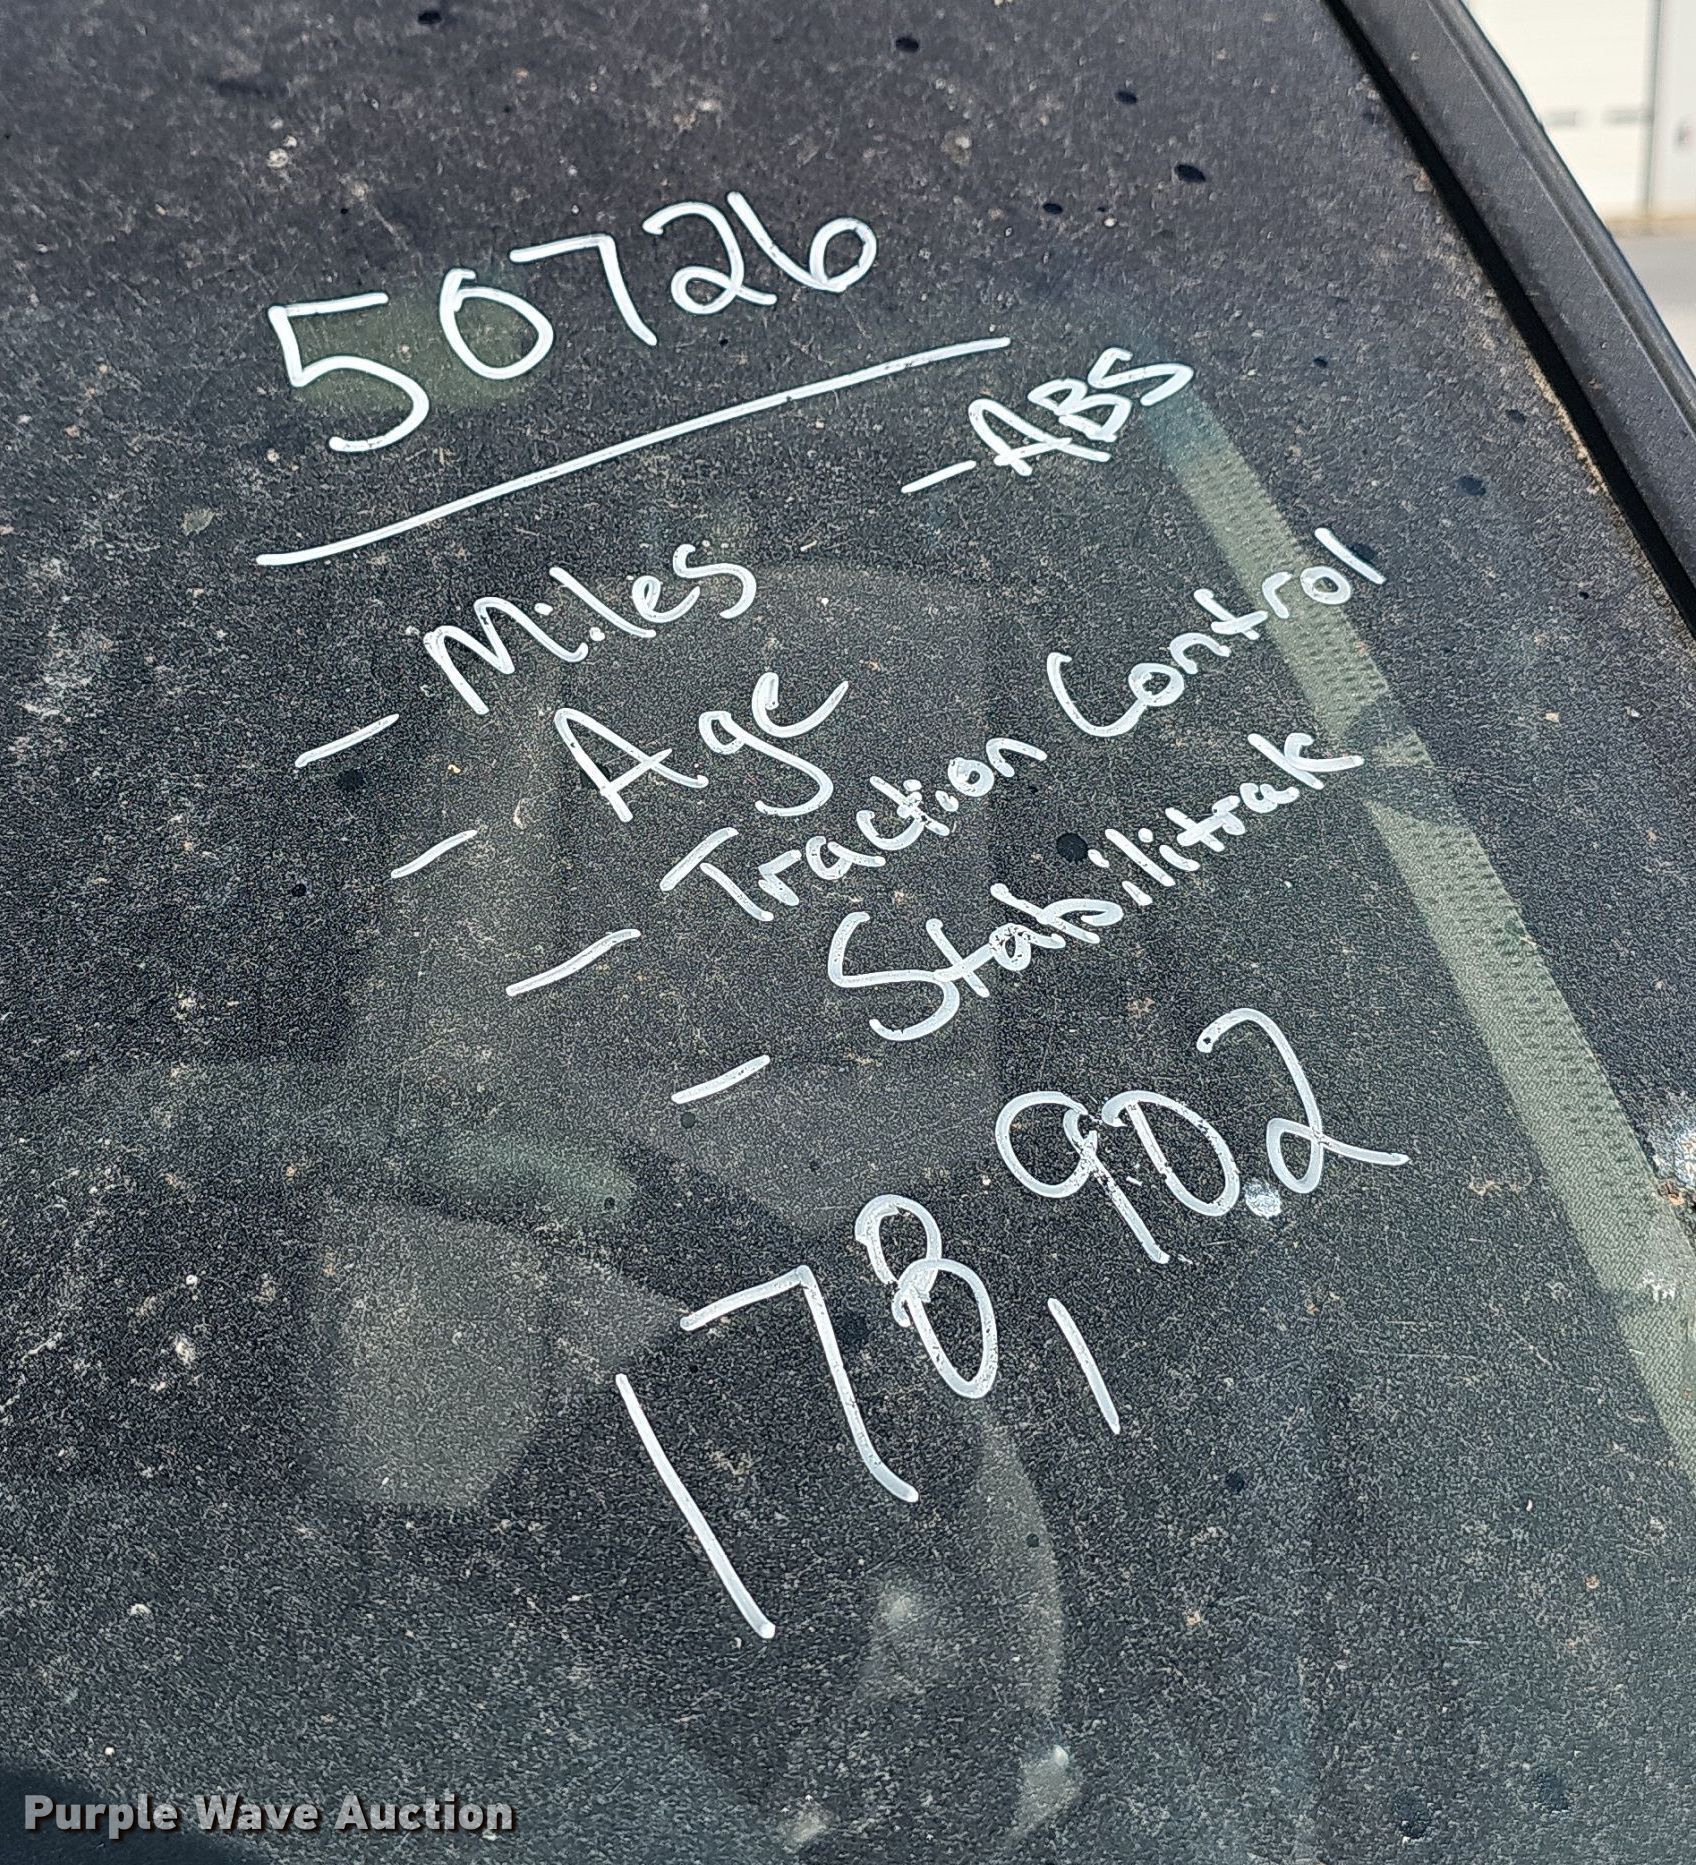 50726
- ABS
- Miles
- Age
- Traction Control
- Stabilitrak
178,902
Purple Wave Auction